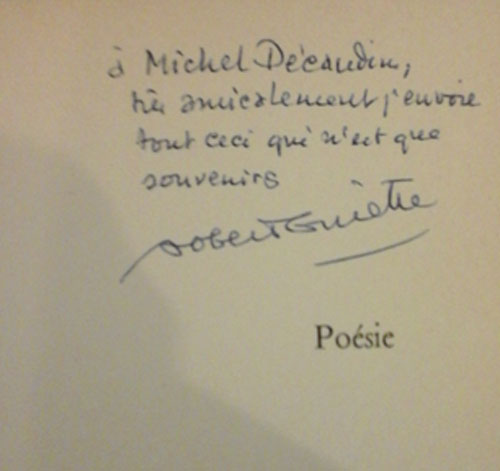 à Michel Décaudin,
très amicalement j'envoie
tout ceci qui n'est que
souvenirs
Robert Guiette
Poésie